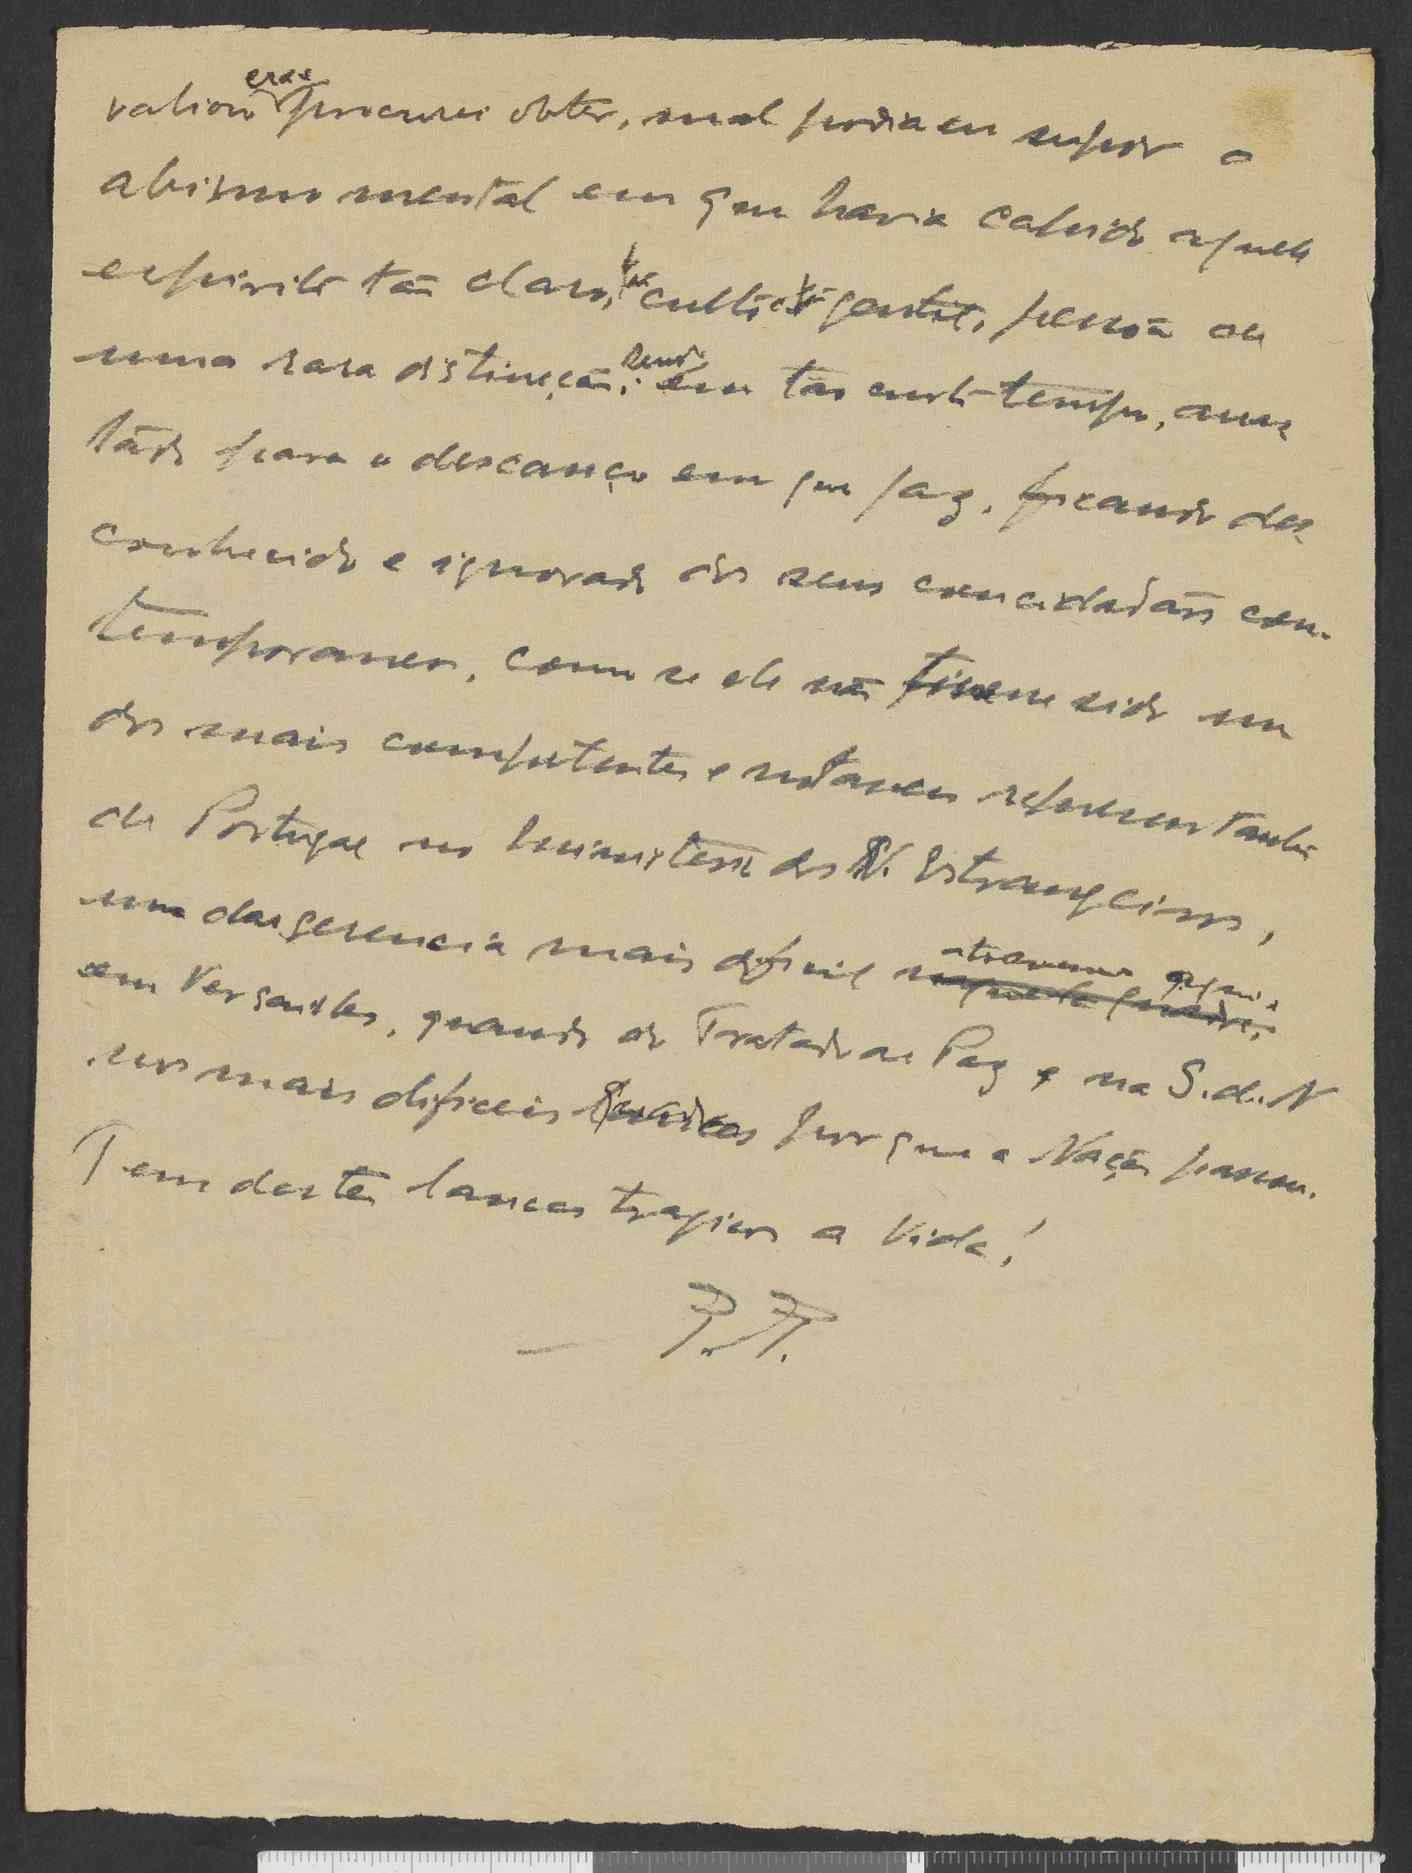 procurei obter, mal podia eu supor o
abismo mental em que havia cahido aquele
espirito tão claro, tão culto e tão gentil, pessoa de
uma rara distincção; sendo em tão curto tempo, arre-
tado para o descanço em que jaz, ficando des-
conhecido e ignorado dos seus concidadãos con-
temporaneos, como se ele não tivesse sido um
dos mais competentes e notaveis representantes
de Portugal no ministerio dos N. Estrangeiros,
em Versailles, quando do Tratado de Paz e na S.d.N
nos mais dificeis porque a Nação passou.
Tem destes lances tragicos a Vida!
P.P.